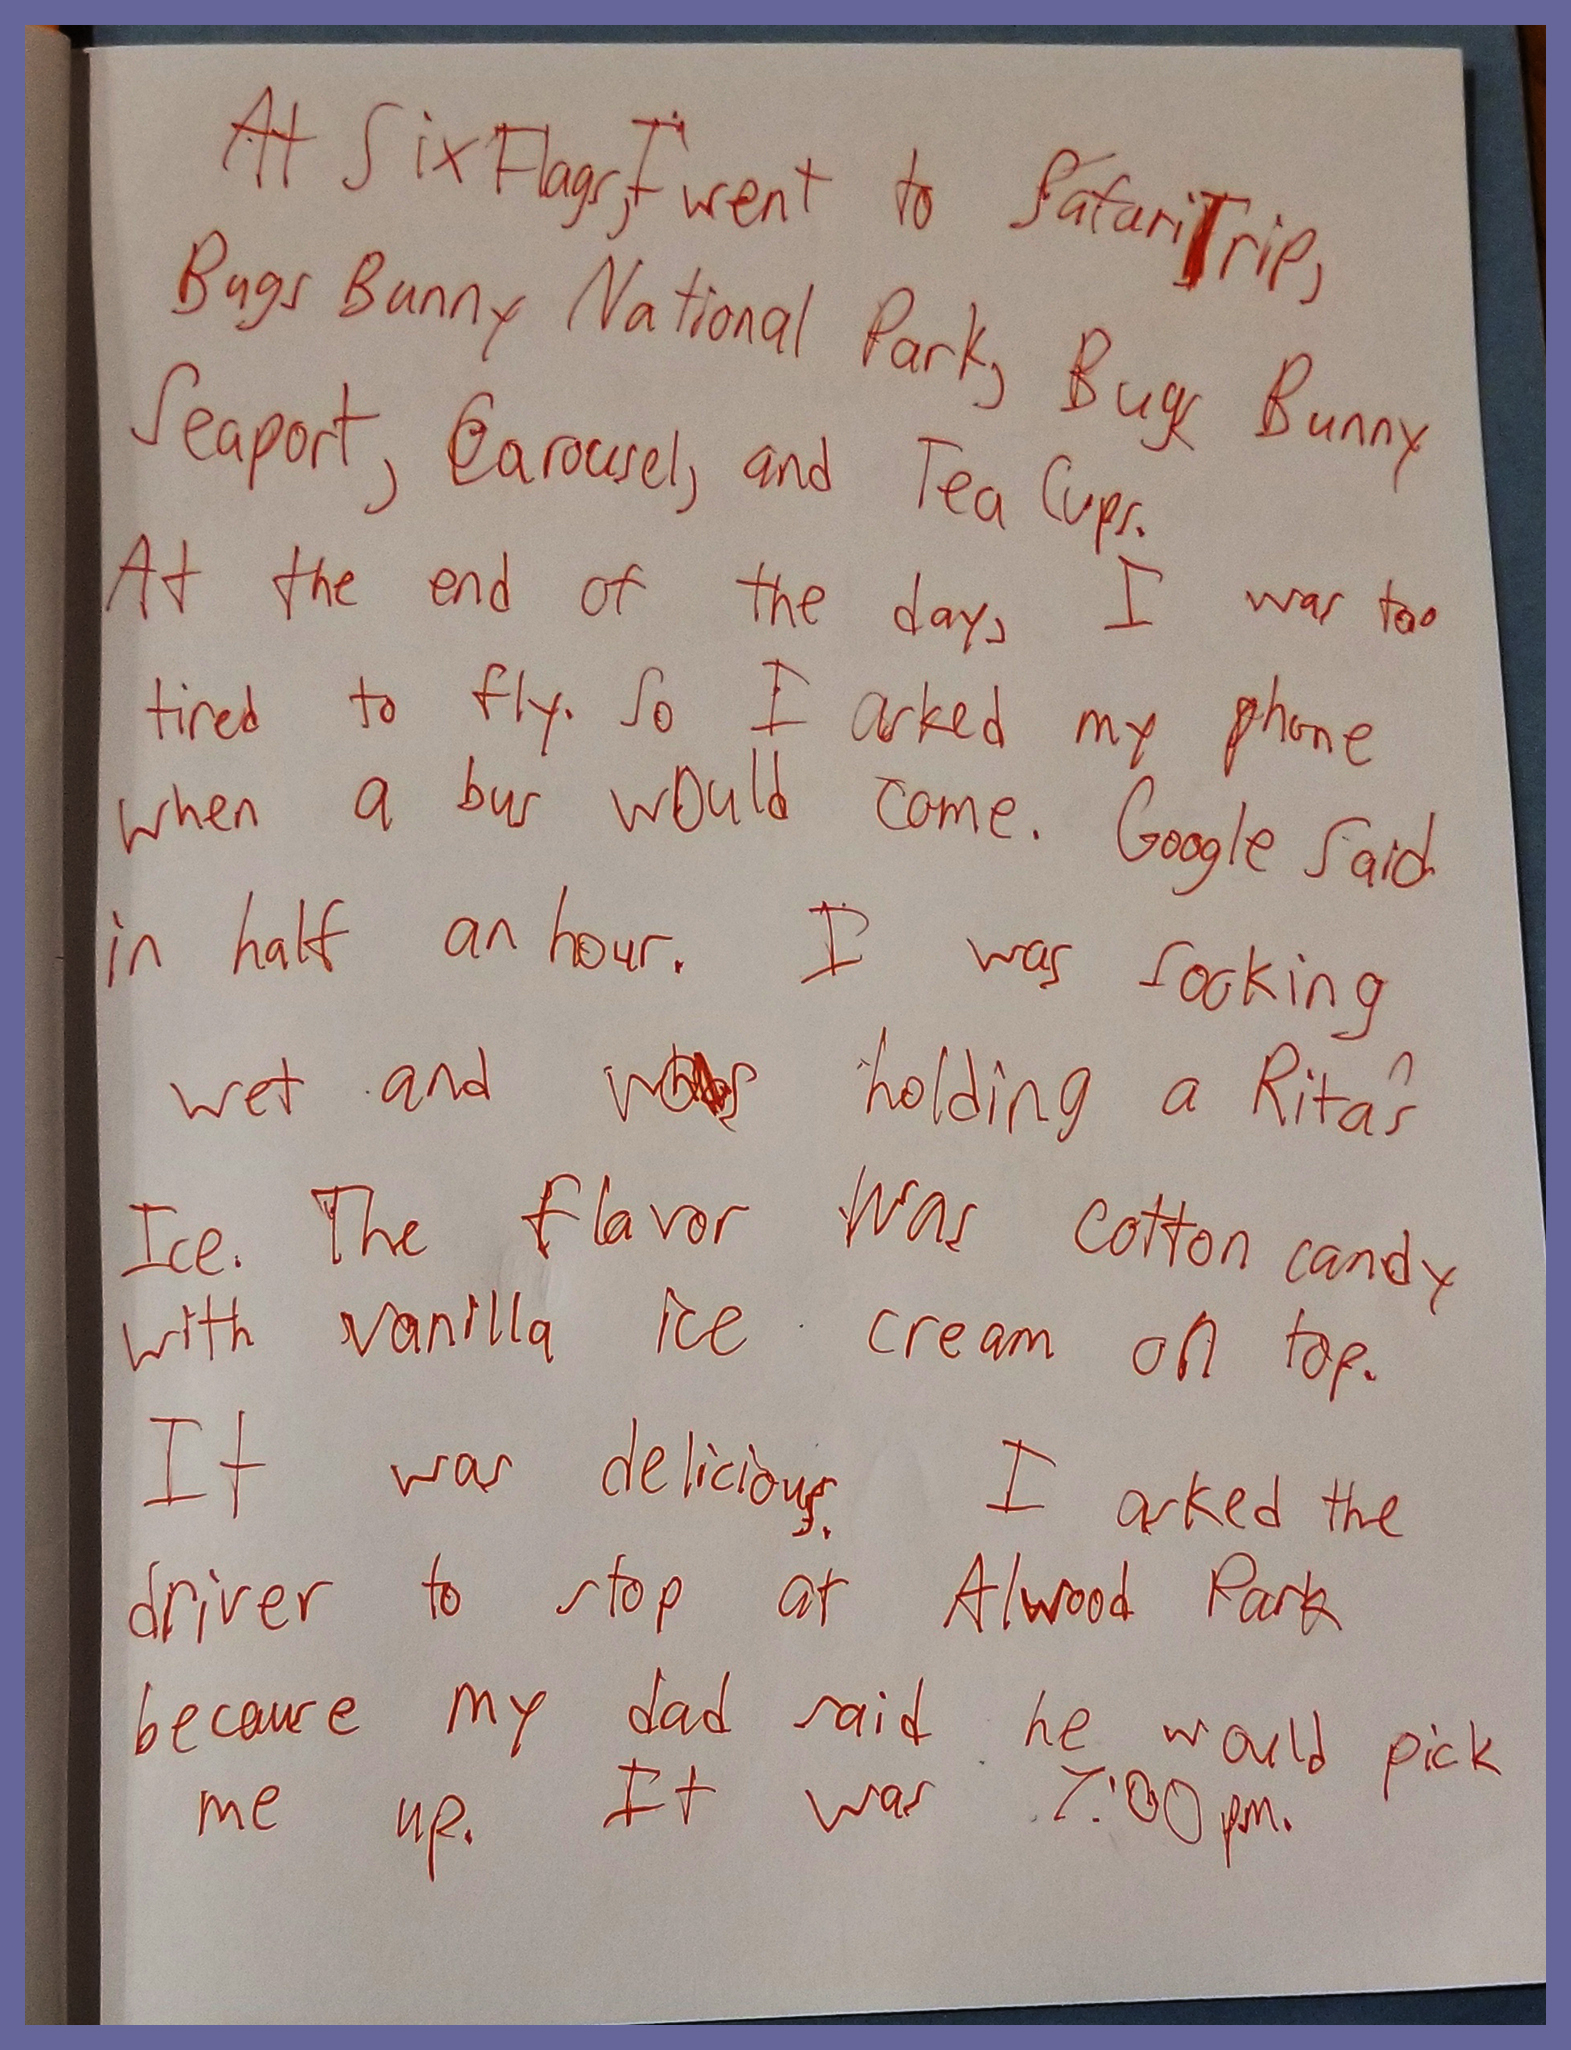 At Six Flags, I went to Safari Trip,
Bugs Bunny National Park, Bugs Bunny
Seaport, Carousel, and Tea Cups.
At the end of the day, I was too
tired to fly. So I asked my phone
when a bus would come. Google said
in half an hour. I was socking
wet and was holding a Rita's
Ice. The flavor was cotton candy
with vanilla ice cream on top.
It was delicious. I asked the
driver to stop at Alwood Park
because my dad said he would pick
me up. It was 7:00 pm.